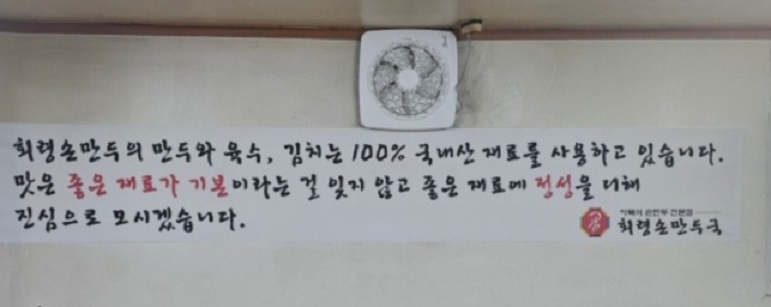 회령손만두의 만두와 육수, 김치는 100% 국내산 재료를 사용하고 있습니다.
맛은 좋은 재료가 기본이라는 걸 잊지 않고 좋은 재료에 정성을 더해
진심으로 모시겠습니다.
이북식 손만두 전문점
회령손만두국